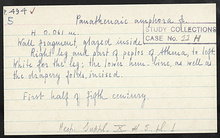 P. 494 ✓
5
Panathenaic amphora fr.
H. 0.061 m.
STUDY COLLECTIONS
CASE No. II H
Wall fragment, glazed inside
Right leg and skirt of peplos of Athena, to left.
White for the leg; the lower hem line, as well as
the draping folds, incised.
First half of fifth century